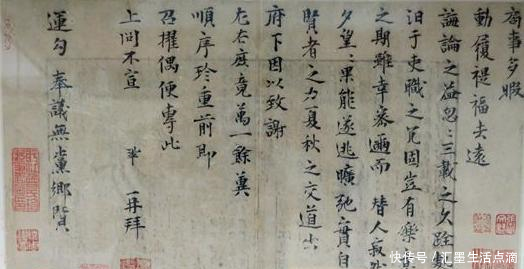 局事多暇
動履禔福去遠
誨論之益忽〻三載之久跧
汩于吏職之冗固豈有樂
之期雖幸密邇而 替人寂
夕望〻果能遂逃曠弛實自
賢者之力夏秋之交道出
府下因以致謝
左右庶竟萬一餘冀
順序珍重前即
召擢偶便專此
上問不宣 鞏 再拜
運勾 奉議無黨鄉賢
快传号/汇墨生活点滴